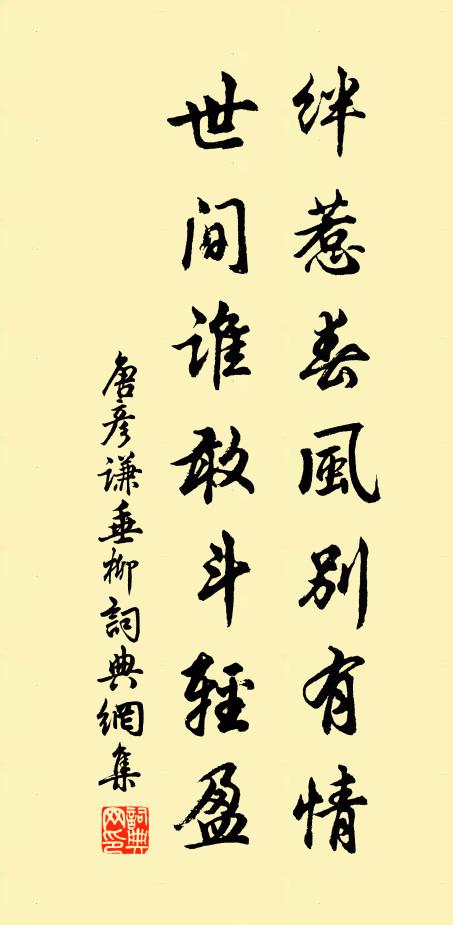 絆惹春風別有情
世间誰敢斗輕盈
唐彦謙垂柳詞典網集
詞典网印